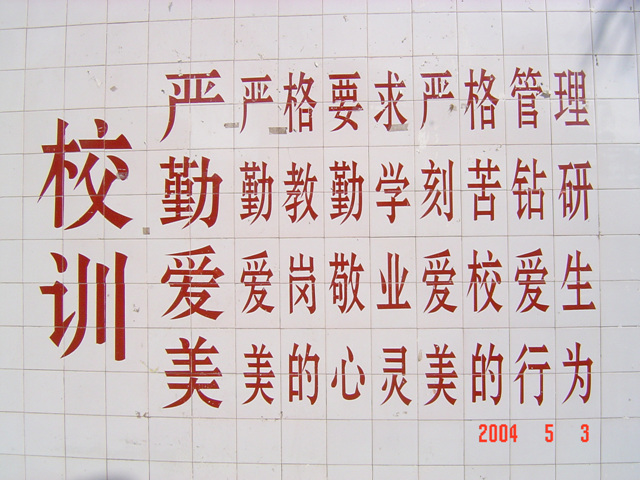 校训
严 严格要求严格管理
勤 勤教勤学刻苦钻研
爱 爱岗敬业爱校爱生
美 美的心灵美的行为
2004 5 3